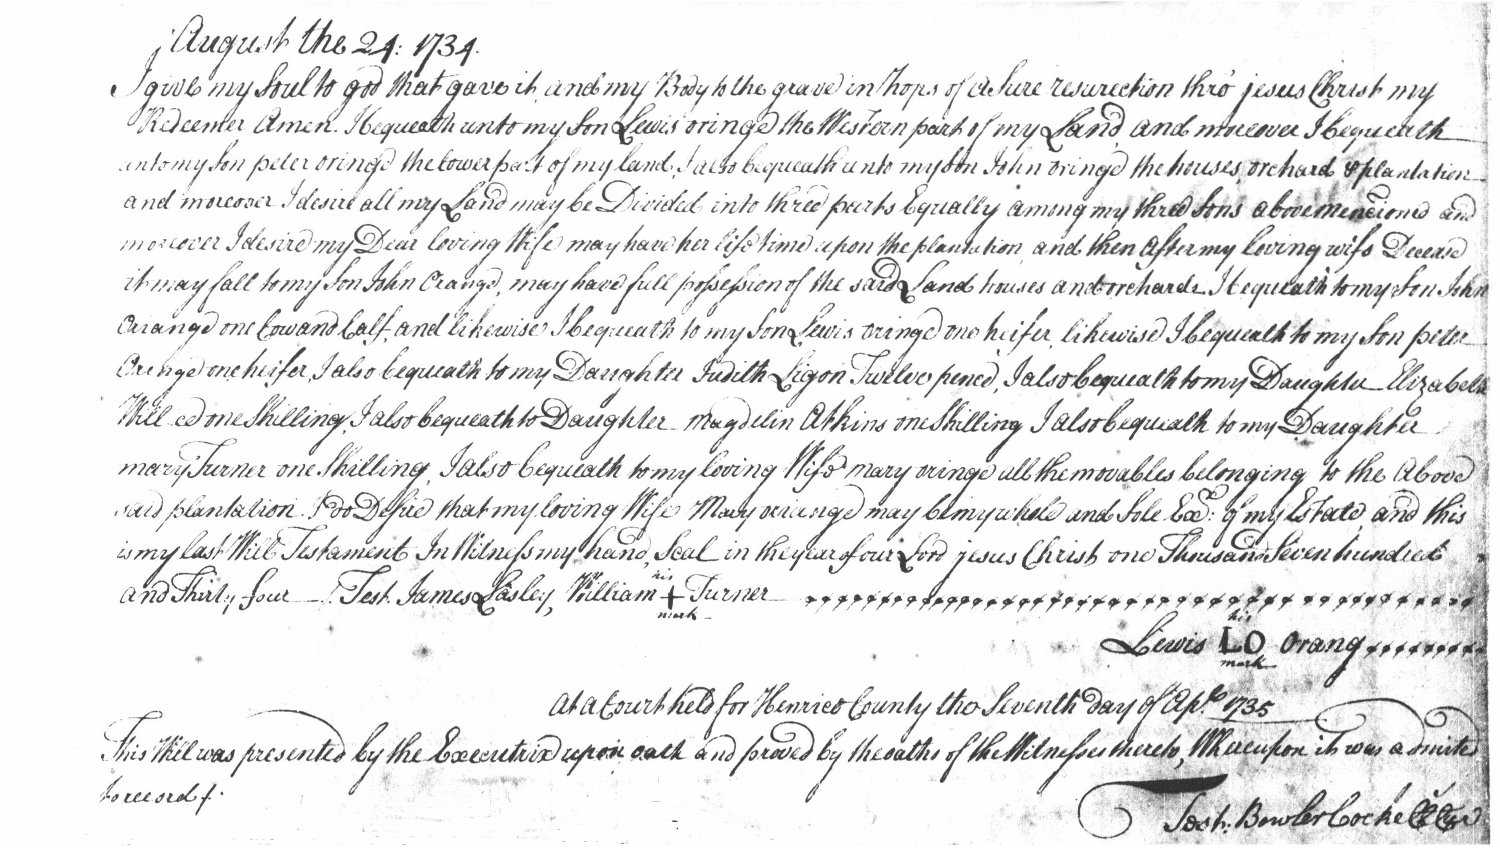 August the 24: 1734.
I give my Soul to god that gave it, and my Body to the grave in hops of a Sure resurection thro' jesus Christ my
Redeemer Amen. I bequeath unto my Son Lewis oringe the Western part of my Land, and moreover I bequeath
unto my Son peter oringe the lower part of my land, I also bequeath unto my Son John oringe the houses, orchard & plantation
and moreover I desire all my Land may be Divided into three parts Equally among my three Sons above mencioned and
moreover I desire my Dear loving Wife may have her life time upon the plantation, and then after my loving wifs Decease
it may fall to my Son John Orange, may have full possession of the said Land houses and orchards I bequeath to my Son John
Orrange one Cow and Calf, and likewise I bequeath to my Son Lewis oringe one heifer, likewise I bequeath to my Son peter
Orenge one heifer, I also bequeath to my Daughter Judith Ligon Twelve pence, I also bequeath to my Daughter Elizabeth
one Shilling, I also bequeath to Daughter magdelin Atkins one Shilling I also bequeath to my Daughter
mary Turner one Shilling, I also bequeath to my loving Wife mary oringe all the movables belonging to the Above
said plantation I do Desire that my loving Wife Mary oriange may be my whole and Sole Exx: of my Estate, and this
is my last Will Testament In Witness my hand, Seal in the year of our Lord jesus Christ one Thousand Seven hundred
and Thirty four Test. James Lasley, William his + mark Turner
Lewis his LO mark Orang
At a Court held for Henrico County the Seventh day of Aprl. 1735
This Will was presented by the Executrix upon oath and proved by the oaths of the Witnesses thereto, Whereupon it was admitted
to record.
Test: Bowler Cocke